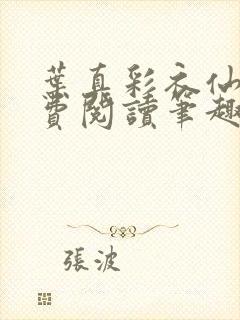 葉真彩衣仙
費閱讀筆趣
張波